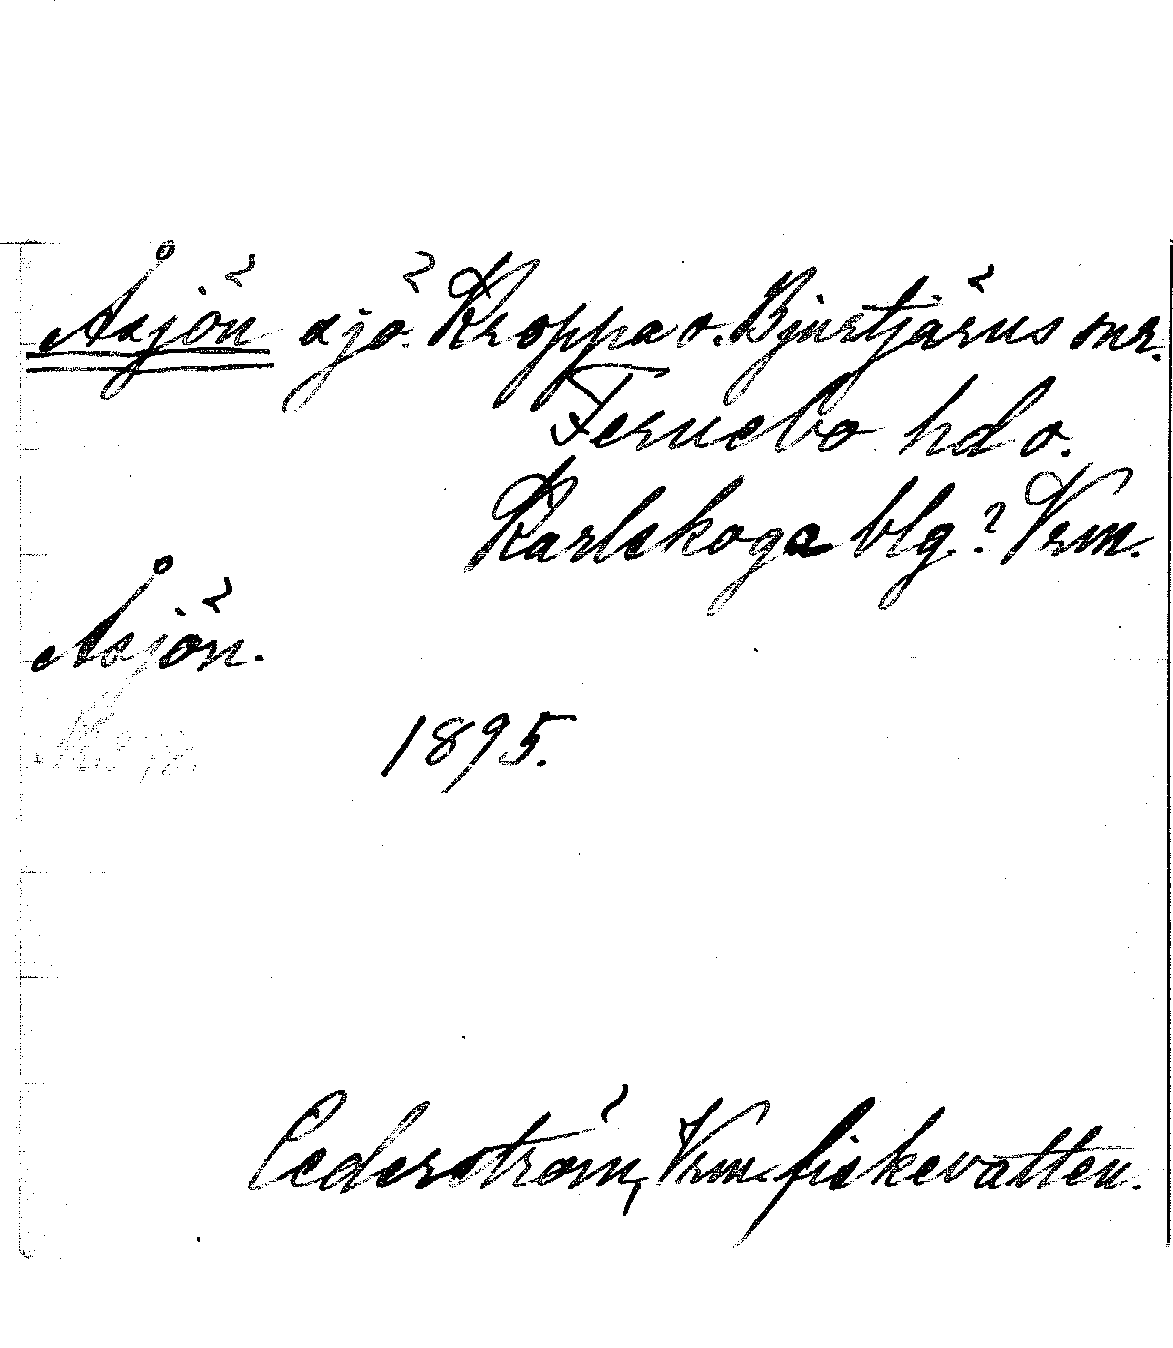 Åsjön sjö. Kroppa o. Bjurtjärns snr.
Fernebo hd o.
Karlskoga blg? Vrm.
Åsjön.
1895.
Cederström, Vrm. fiskevatten.